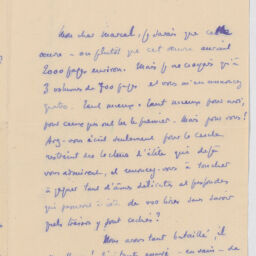 Mon cher Marcel, je savais que cette
œuvre - ou plutôt que cet œuvre aurait
2000 pages environ. Mais je ne croyais qu'à
3 volumes de 700 pages et vous m'en annoncez
quatre. Tant mieux - tant mieux pour moi,
pour ceux qui ont lu le premier. Mais pour vous !
Avez-vous écrit seulement pour le cercle
restreint des lecteurs d'élite qui déjà
vous admirent, et renoncez-vous à toucher
à gagner tant d'âmes délicates et profondes
qui passeront à côté de vos livres sans savoir
quels trésors y sont cachés ?
Nous avons tant bataillé, il
tant - en vain - de